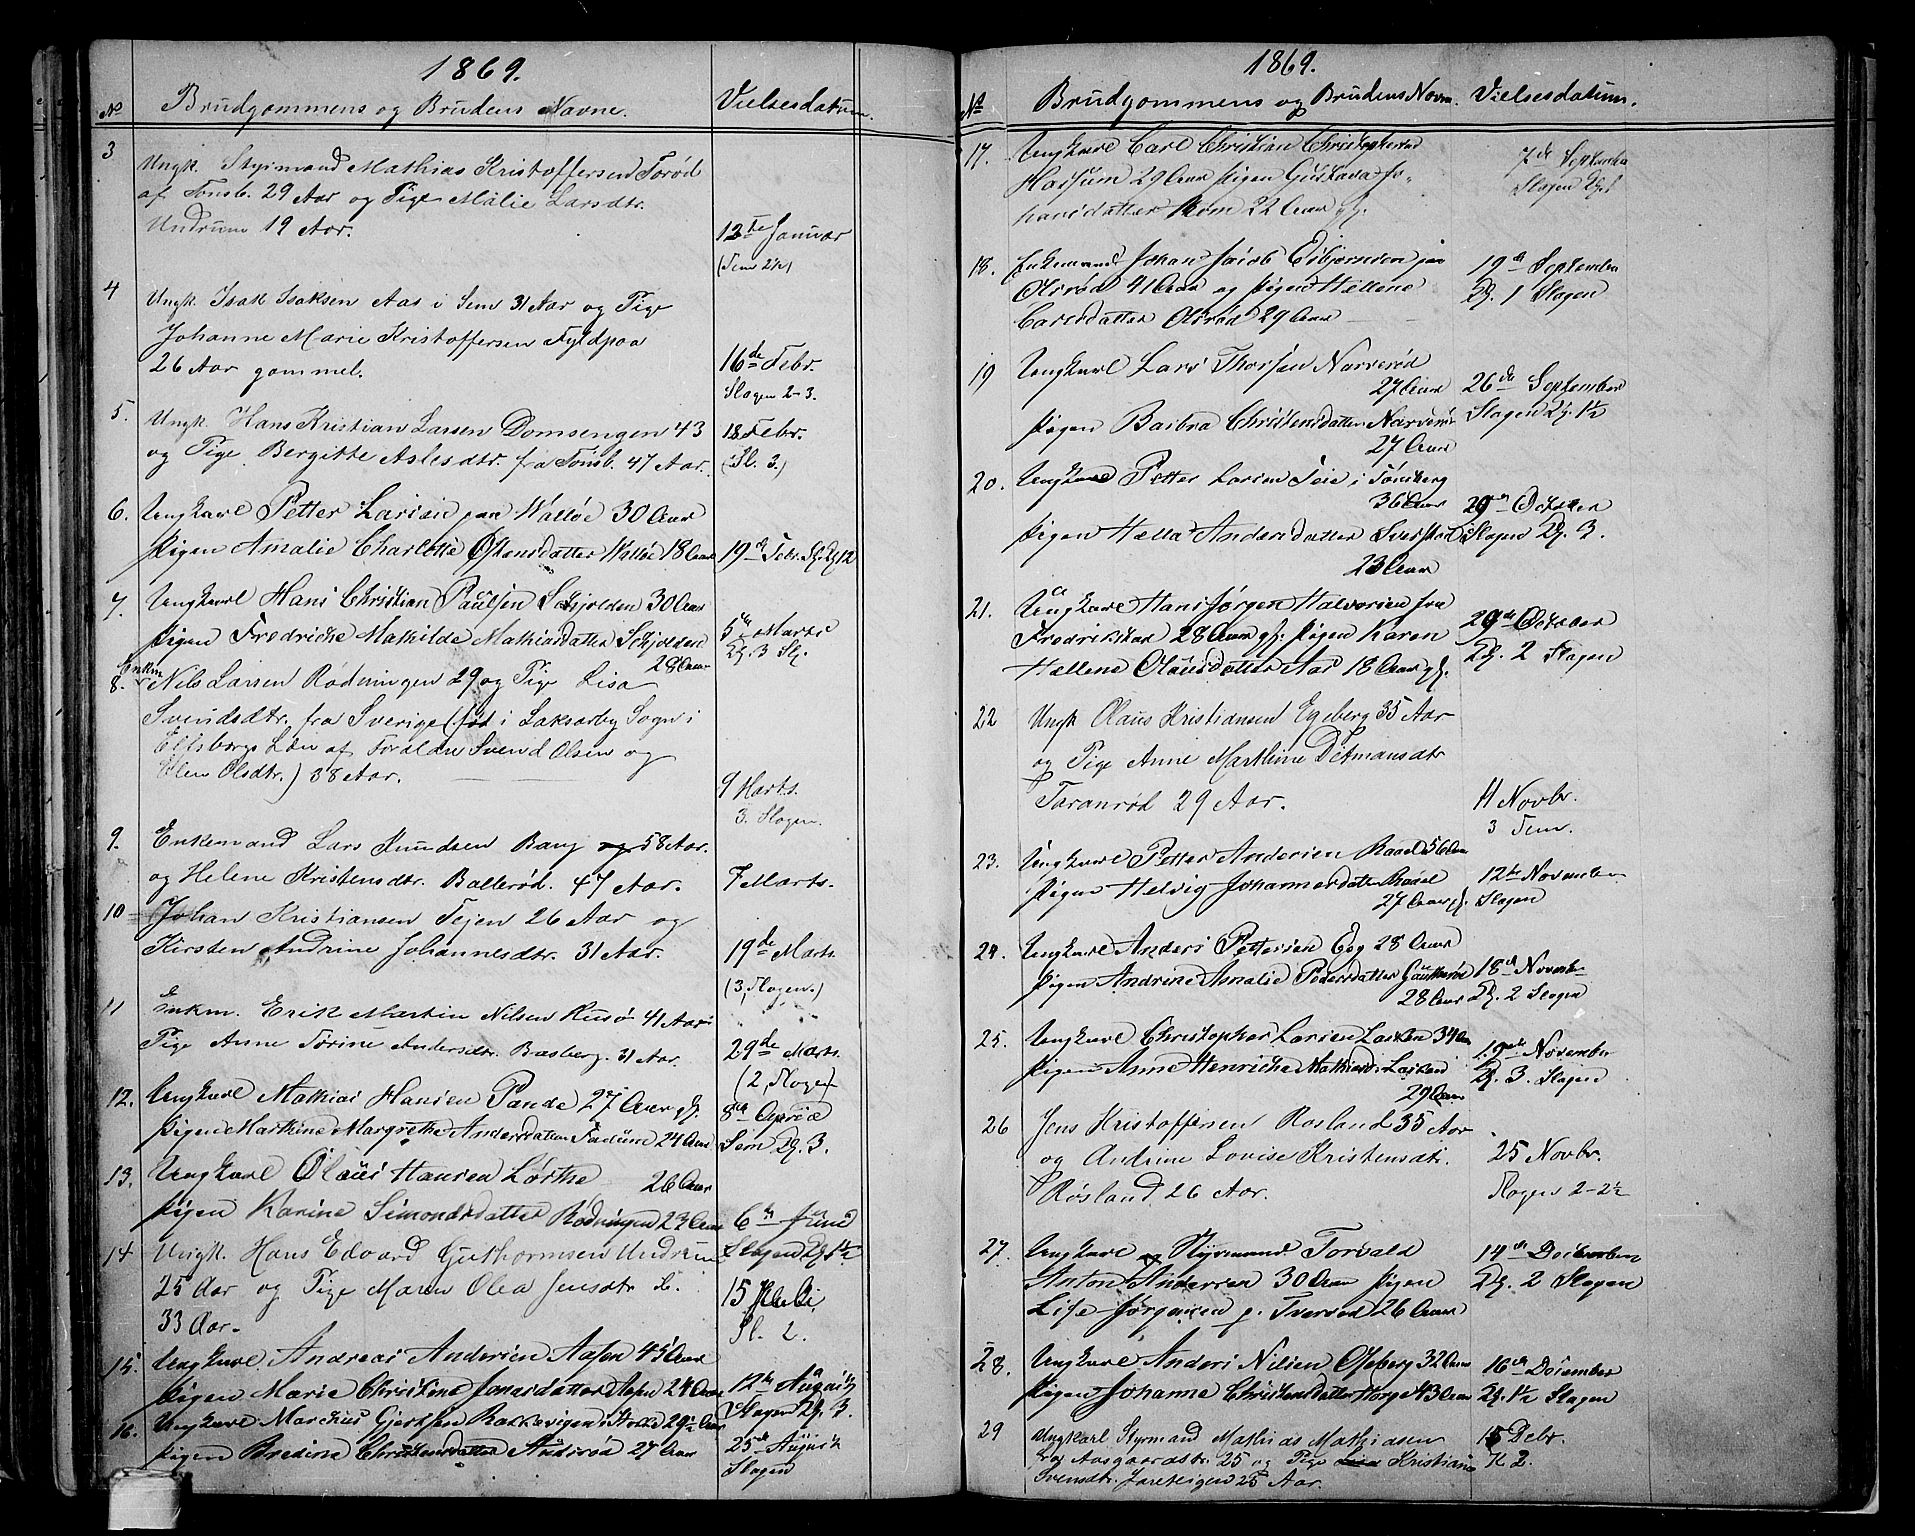 1869.
No Brudgommens og Brudens Navne. Vielsesdatum.
3 Ungk. Styrmand Mathias Kristoffersen Torød
af Tonsb. 29 Aar og Pige Malie Larsdtr.
Undrum 19 Aar. 12te Januar
(Sem 2½)
4 Ungk. Isak Isaksen Aas i Sem 31 Aar og Pige
Johanne Marie Kristoffersen Fyldpaa
26 Aar gammel. 16de Febr.
Slagen 2-3.
5. Ungk. Hans Kristian Larsen Domsengen 43 18 Febr.
og Pige Bergitte Aslesdtr. fra Tonsb. 47 Aar. (Sl. 3.)
6. Ungkarl Petter Larsen paa Walløe 30 Aar
Pigen Amalie Charlotte Ostensdatter Walløe 18 Aar 19de Febr.
7. Ungkarl Hans Christian Paulsen Schjolden 30 Aar
Pigen Fredriche Mathilde Mathiasdatter Schjolden 5te Marts
28 Aar Dg. 3 Sl.
8. Enkm Nils Larsen Rødningen 29 og Pige Lisa
Svendsdtr. fra Sverige (fød i Laksarby Sogn i
Elfsborgs Län af Foraldre Svend Olsen og
Elen Olsdtr.) 38 Aar. 9 Marts.
3. Slagen.
9. Enkemand Lars Knudsen Bang 58 Aar.
og Helene Kristensdtr. Ballerød. 47 Aar. 7 Marts.
10 Johan Kristiansen Tejen 26 Aar og
Kirsten Andrine Johannesdtr. 31 Aar. 19de Marts
(3, Slagen.)
11 Enkm. Erik Martin Nilsen Husø 41 Aar
Pige Anne Torine Andersdtr. Basberg. 31 Aar. 29de Marts
(2, Slage)
12. Ungkarl Mathias Hansen Pande 27 Aar gl. 8de April
Pigen Marthine Margrethe Andersdatter Fadum 24 Aar Sem Dg. 3.
13. Ungkarl Olaus Hansen Lofthe 26 Aar
Pigen Karine Simonsdatter Rodningen 23 Aar 6te Juni
Slagen Dg. 1½
14 Ungk. Hans Edvard Guthormsen Undrum
25 Aar og Pige Maren Olea Jensdtr. 15 Juli
33 Aar. Sl. 2.
15. Ungkarl Andreas Andersen Aasen 45 Aar
Pigen Marie Christine Jonasdatter Aasen 24 Aar 12te August
Slagen Dg. 3.
16. Ungkarl Marchus Gjertsen Rakkevigen i Stokke 29½ Aar
Pigen Bredine Christensdatter 27 Aar 25de August
Slagen
1869.
No Brudgommens og Brudens Navne. Vielsesdatum.
17. Ungkarl Carl Christian Christophersen 7de September
Hassum 29 Aar Pigen Gustava Jo- Slagen Dg. 1
hansdatter Rom 22 Aar gl.
18. Enkemand Johan Jacob Esbjørnsen paa 19de September
Olsrød 41 Aar og Pigen Hellene Dg. 1 Slagen
Carlsdatter Olsrød 29 Aar
19 Ungkarl Lars Thorsen Narverød
27 Aar 26de September
Pigen Barbra Christensdatter Narverød Slagen Dg. 1½
27 Aar
20. Ungkarl Petter Larsen Teie i Tønsberg
36 Aar 29de October
Pigen Hella Andersdatter Slagen Dg. 3.
23 Aar
21. Ungkarl Hans Jørgen Halvorsen fra 29de October
Fredrikstad 28 Aar gl. Pigen Karen
Hellene Olausdatter Aas 18 Aar gl. Dg. 2 Slagen
22 Ungk Olaus Kristiansen Egeberg 35 Aar
og Pige Anne Marthine Ditmansdtr
Taranrød 29 Aar. 11 Novbr.
3 Sem.
23. Ungkarl Petter Andersen Raael 56 Aar
Pigen Helvig Johannesdatter Raael 12te November
27 Aar gl. Slagen
24. Ungkarl Anders Pettersen Eeg 28 Aar
Pigen Andrine Amalie Pedersdatter Gauterød 18de Novemb.
28 Aar Dg. 2 Slagen
25. Ungkarl Christopher Larsen Lasken 34 Aar
Pigen Anne Henriche Mathiasd. Lasken 19de November
29 Aar Dg. 3. Slagen
26 Jens Kristoffersen Rosland 35 Aar
og Andrine Lovise Kristensdtr. 25 Novbr.
Røsland 26 Aar. Slagen 2-2½
27. Ungkarl og Styrmand Torvald 14de December
Anton Andersen 30 Aar Pigen Dg. 2 Slagen
Lise Jørgensen p. Tverved 26 Aar
28. Ungkarl Anders Nilsen Oseberg 32 Aar 16de December
Pigen Johanne Christensdatter Horge 43 Aar Dg. 1½ Slagen
29 Ungkarl Styrmand Mathias Mathiasen 15 Debr.
fra Aasgaardstr. 25 og Pige Kristiane Sl 2.
Svensdtr. Jareteigen 25 Aar.